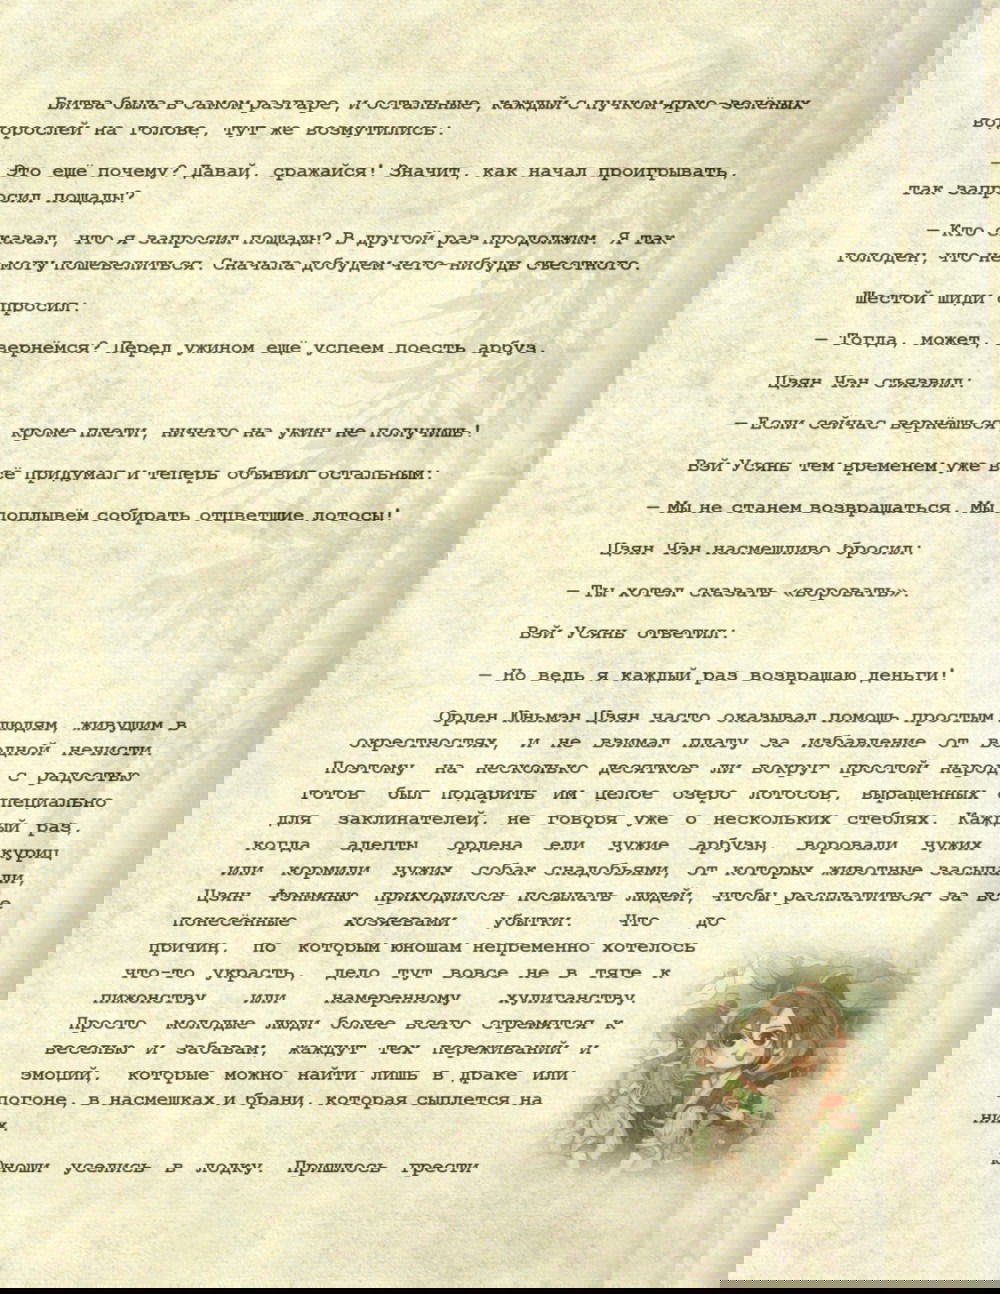 Битва была в самом разгаре, и остальные, каждый с пучком ярко-зелёных
водорослей на голове, тут же возмутились:
— Это ещё почему? Давай, сражайся! Значит, как начал проигрывать,
так запросил пощады?
— Кто сказал, что я запросил пощады? В другой раз продолжим. Я так
голоден, что не могу пошевелиться. Сначала добудем чего-нибудь съестного.
Шестой шиди спросил:
— Тогда, может, вернёмся? Перед ужином ещё успеем поесть арбуз.
Цзян Чэн съязвил:
— Если сейчас вернёшься, кроме плети, ничего на ужин не получишь!
Вэй Усянь тем временем уже всё придумал и теперь объявил остальным:
— Мы не станем возвращаться. Мы поплывём собирать отцветшие лотосы!
Цзян Чэн насмешливо бросил:
— Ты хотел сказать «воровать».
Вэй Усянь ответил:
— Но ведь я каждый раз возвращаю деньги!
Орден Юньмэн Цзян часто оказывал помощь простым людям, живущим в
окрестностях, и не взимал плату за избавление от водной нечисти.
Поэтому на несколько десятков ли вокруг простой народ с радостью
готов был подарить им целое озеро лотосов, выращенных специально
для заклинателей, не говоря уже о нескольких стеблях. Каждый раз,
когда адепты ордена ели чужие арбузы, воровали чужих куриц
или кормили чужих собак снадобьями, от которых животные засыпали,
Цзян Фэнмяню приходилось посылать людей, чтобы расплатиться за все
понесённые хозяевами убытки. Что до
причин, по которым юношам непременно хотелось
что-то украсть, дело тут вовсе не в тяге к
пижонству или намеренному хулиганству.
Просто молодые люди более всего стремятся к
веселью и забавам, жаждут тех переживаний и
эмоций, которые можно найти лишь в драке или
погоне, в насмешках и брани, которая сыплется на
них.
Юноши уселись в лодку. Пришлось грести